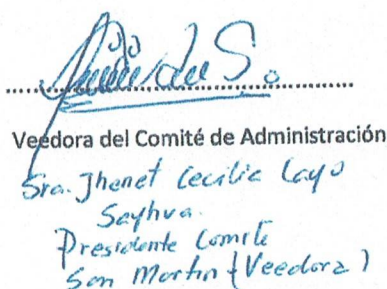 Veedora del Comité de Administración
Sra. Jhenet Cecilia Layo
Sayhua.
Presidente Comite
San Martin (Veedora)